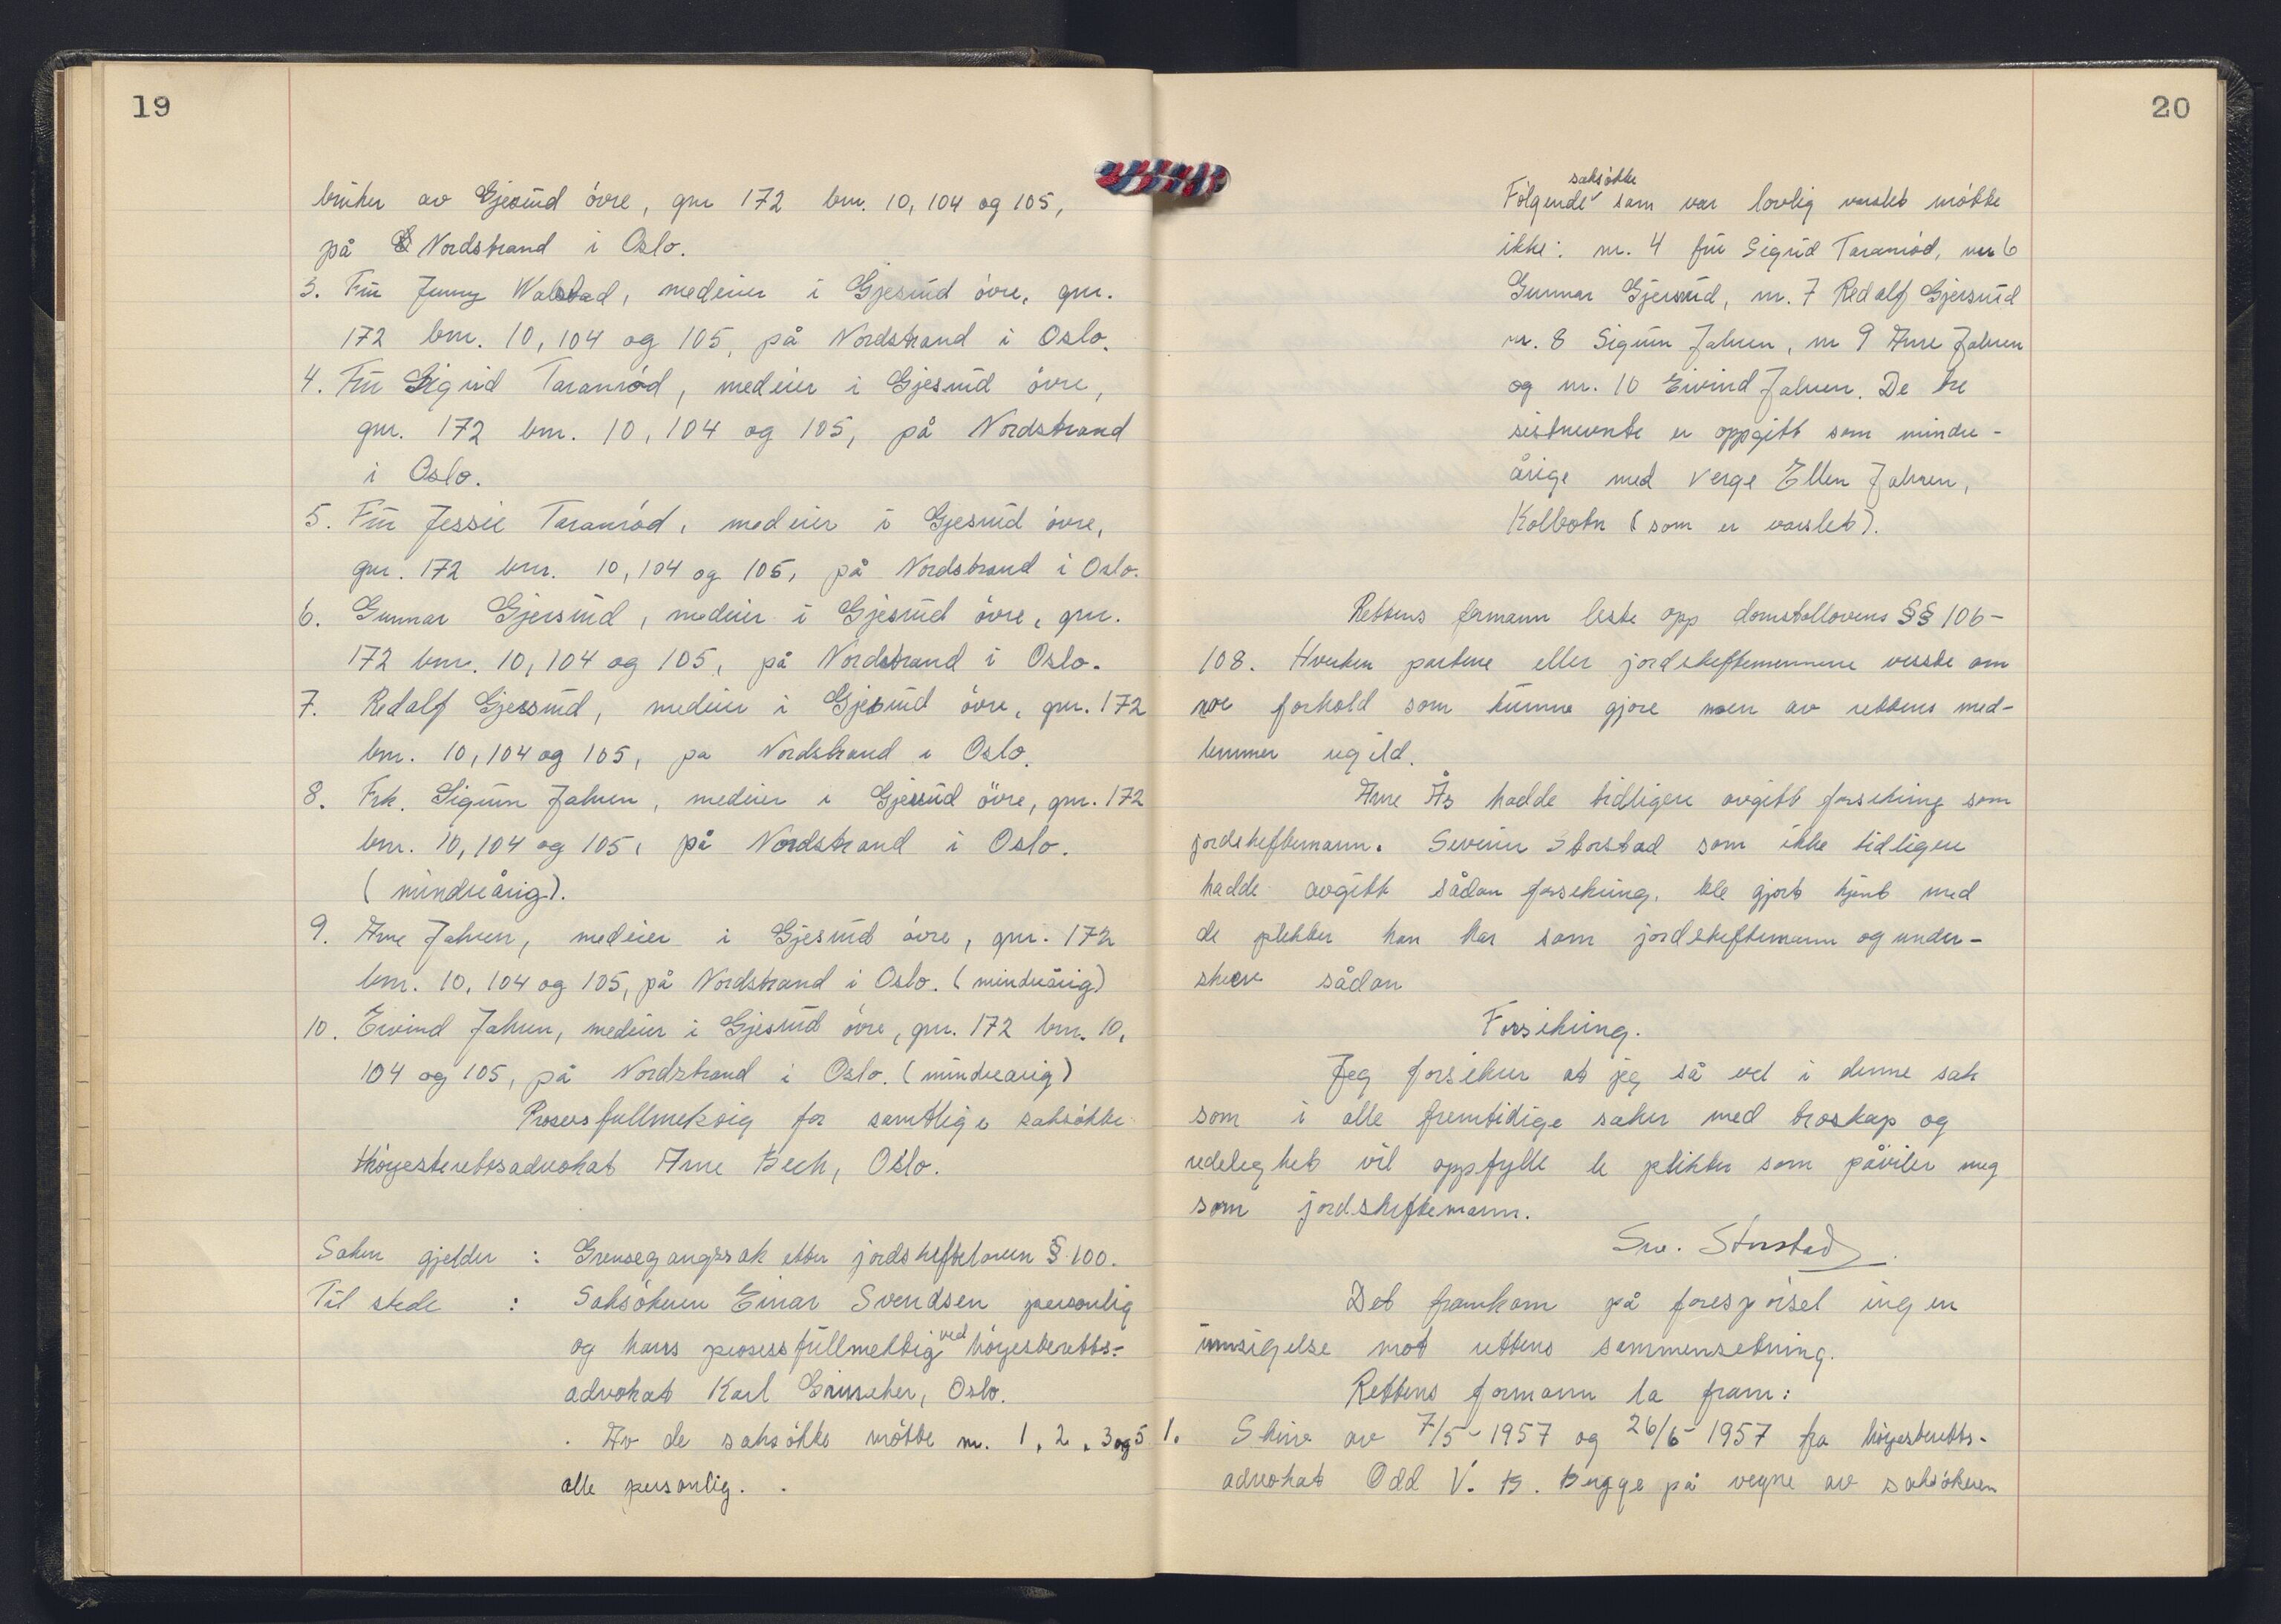 19
bruker av Gjesrud övre, gnr 172 bnr. 10, 104 og 105,
på Nordstrand i Oslo.
3. Fru Jenny Walstad, medeier i Gjesrud övre, gnr.
172 bnr. 10, 104 og 105, på Nordstrand i Oslo.
4. Fru Sigrid Tararöd, medeier i Gjesrud övre,
gnr. 172 bnr. 10, 104 og 105, på Nordstrand
i Oslo.
5. Fru Jessie Tararöd, medeier i Gjesrud övre,
gnr. 172 bnr. 10, 104 og 105, på Nordstrand i Oslo.
6. Gunnar Gjersrud, medeier i Gjesrud övre, gnr.
172 bnr. 10, 104 og 105, på Nordstrand i Oslo.
7. Redolf Gjersrud, medeier i Gjesrud övre, gnr. 172
bnr. 10, 104 og 105, på Nordstrand i Oslo.
8. Frk. Sigrun Jahren, medeier i Gjesrud övre, gnr. 172
bnr. 10, 104 og 105, på Nordstrand i Oslo.
(mindreårig).
9. Arne Jahren, medeier i Gjesrud övre, gnr. 172
bnr. 10, 104 og 105, på Nordstrand i Oslo. (mindreårig)
10. Eivind Jahren, medeier i Gjesrud övre, gnr. 172 bnr. 10,
104 og 105, på Nordstrand i Oslo. (mindreårig)
Prosessfullmektig for samtlige saksökte
Höyesterettsadvokat Arne Bech, Oslo.
Saken gjelder : Grensegangssak etter jordskifteloven § 100.
Til stede : Saksökeren Einar Svendsen personlig
og hans prosessfullmektig ved höyesteretts-
advokat Karl Oslo.
Av de saksökte mötte nr. 1, 2, 3 og 5
alle personlig.
20
Fölgende saksökte som var lovlig varslet mötte
ikke: nr. 4 fru Sigrid Tararöd, nr 6
Gunnar Gjersrud, nr. 7 Redolf Gjersrud
nr. 8 Sigrun Jahren, nr 9 Arne Jahren
og nr. 10 Eivind Jahren. De tre
sistnevnte er oppgitt som mindre-
årige med verge Ellen Jahren,
Kolbotn (som er varslet).
Rettens formann leste opp domstollovens §§ 106-
108. Hverken partene eller jordskiftemennene visste om
noe forhold som kunne gjöre noen av rettens med-
lemmer ugild.
Arne Ås hadde tidligere avgitt forsikring som
jordskiftemann. Severin Storstad som ikke tidligere
hadde avgitt sådan forsikring, ble gjort kjent med
de plikter han har som jordskiftemann og under-
skrev sådan
Forsikring.
Jeg forsikrer at jeg så vel i denne sak
som i alle fremtidige saker med troskap og
redelighet vil oppfylle de plikter som påviler meg
som jordskiftemann.
Sev. Storstad.
Det framkom på forespörsel ingen
innsigelse mot rettens sammensetning.
Rettens formann la fram:
1. Skriv av 7/5-1957 og 26/6-1957 fra höyesteretts-
advokat Odd V. B. Bugge på vegne av saksökeren